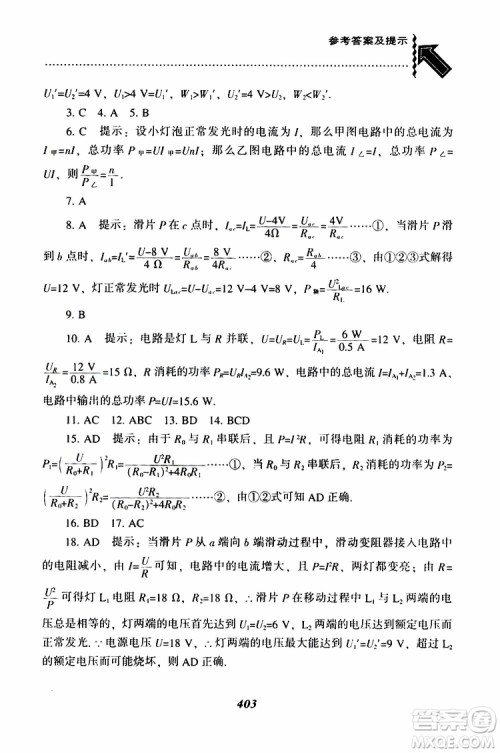 参考答案及提示
U₁′=U₂′=4 V，U₁>4 V=U₁′，W₁′=W₂′，U₂<4 V=U₂′.
3. C　4. A　5. B
6. C　提示：设小灯泡正常发光时的电流为 I，那么甲图电路中的总电流为
I甲=nI，总功率为 P甲=I甲U=UnI；那么乙图电路中的总电流为 I乙=I，总功率为 P乙=
UI，则 P甲/P乙=n/1.
7. A
8. A　提示：滑片 P 在 c 点时，Iac=IL=(U-4V)/4Ω=Uac/Rac=4V/Rac……①，当滑片 P 滑
到 b 点时，Iab=IL′=(U-8 V)/4 Ω=Uab/Rab=8 V/4Rac……②，Rac=Rab/4……③，由①②③式解得
U=12 V，灯正常发光时 ULac=U-Uac=8 V，P额=U²Lac/RL=16 W.
9. B
10. A　提示：电路是灯 L 与 R 并联，U=UR=UL=PL/IA₁=6 W/0.5 A=12 V，电阻 R=
UR/IA₂=12 V/0.8 A=15 Ω，R 消耗的功率 PR=URIA₂=9.6 W，电路中的总电流 I=IA₁+IA₂=1.3 A，
电路中输出的总功率 P=UI=15.6 W.
11. AC　12. ABC　13. BD　14. BCD
15. AD　提示：由于 R₀ 与 R₁ 串联后，P=I²R，此时 R₁ 消耗的功率为
P₁=(U/(R₀+R₁))²R₁=U²R₁/((R₀-R₁)²+4R₀R₁)……①，当 R₀ 与 R₂ 串联后，此时 R₂ 消耗的功率为 P₂
=(U/(R₀+R₂))²R₂=U²R₂/((R₀-R₂)²+4R₀R₂)……②，由①②式可知 AD 正确.
16. BD　17. AC
18. AD　提示：当滑片 P 从 a 端向 b 端滑动过程中，滑动变阻器接入电路中
的电阻减小，由 I=U/R 可知，电路中的电流增大，由 P=I²R 可知，两灯都变亮；由 R=
U²/P 可求得灯 L₁ 电阻 R₁=18 Ω，R₂=18 Ω，滑片 P 在移动过程中 L₁ 与 L₂ 两端的电压
总是相等的，灯两端的电压首先达到 U₁=6 V，当灯两端电压首先达到 6 V 时灯 L₁
正常发光. ∵ 电源电压 U=18 V，∴ 灯两端电压最大能达到 U=9 V，当超过 L₂
的额定电压而可能烧坏，∴ AD 正确.
403